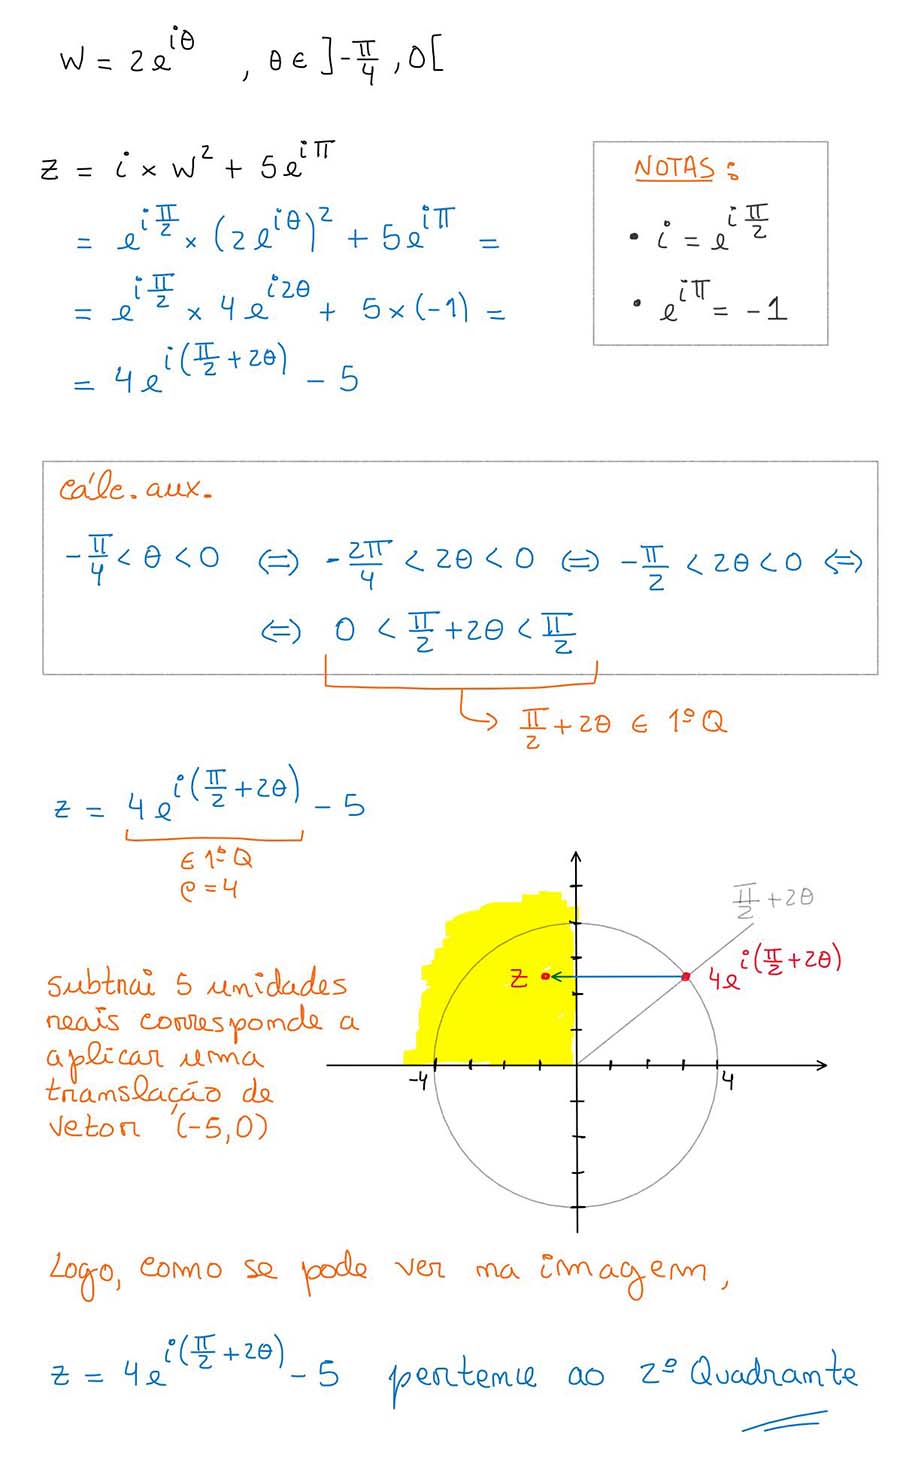 w = 2e^{iθ} , θ ∈ ]-π/4 , 0[
z = i × w² + 5e^{iπ}
= e^{iπ/2} × (2e^{iθ})² + 5e^{iπ} =
= e^{iπ/2} × 4e^{i2θ} + 5×(-1) =
= 4e^{i(π/2 + 2θ)} - 5
NOTAS :
• i = e^{iπ/2}
• e^{iπ} = -1
cálc. aux.
-π/4 < θ < 0 ⇔ -2π/4 < 2θ < 0 ⇔ -π/2 < 2θ < 0 ⇔
⇔ 0 < π/2 + 2θ < π/2
π/2 + 2θ ∈ 1º Q
z = 4e^{i(π/2 + 2θ)} - 5
∈ 1º Q
ρ = 4
Subtrai 5 unidades
reais corresponde a
aplicar uma
translação de
vetor (-5,0)
π/2 + 2θ
4e^{i(π/2 + 2θ)}
z
-4
4
Logo, como se pode ver na imagem,
z = 4e^{i(π/2 + 2θ)} - 5 pertence ao 2º Quadrante